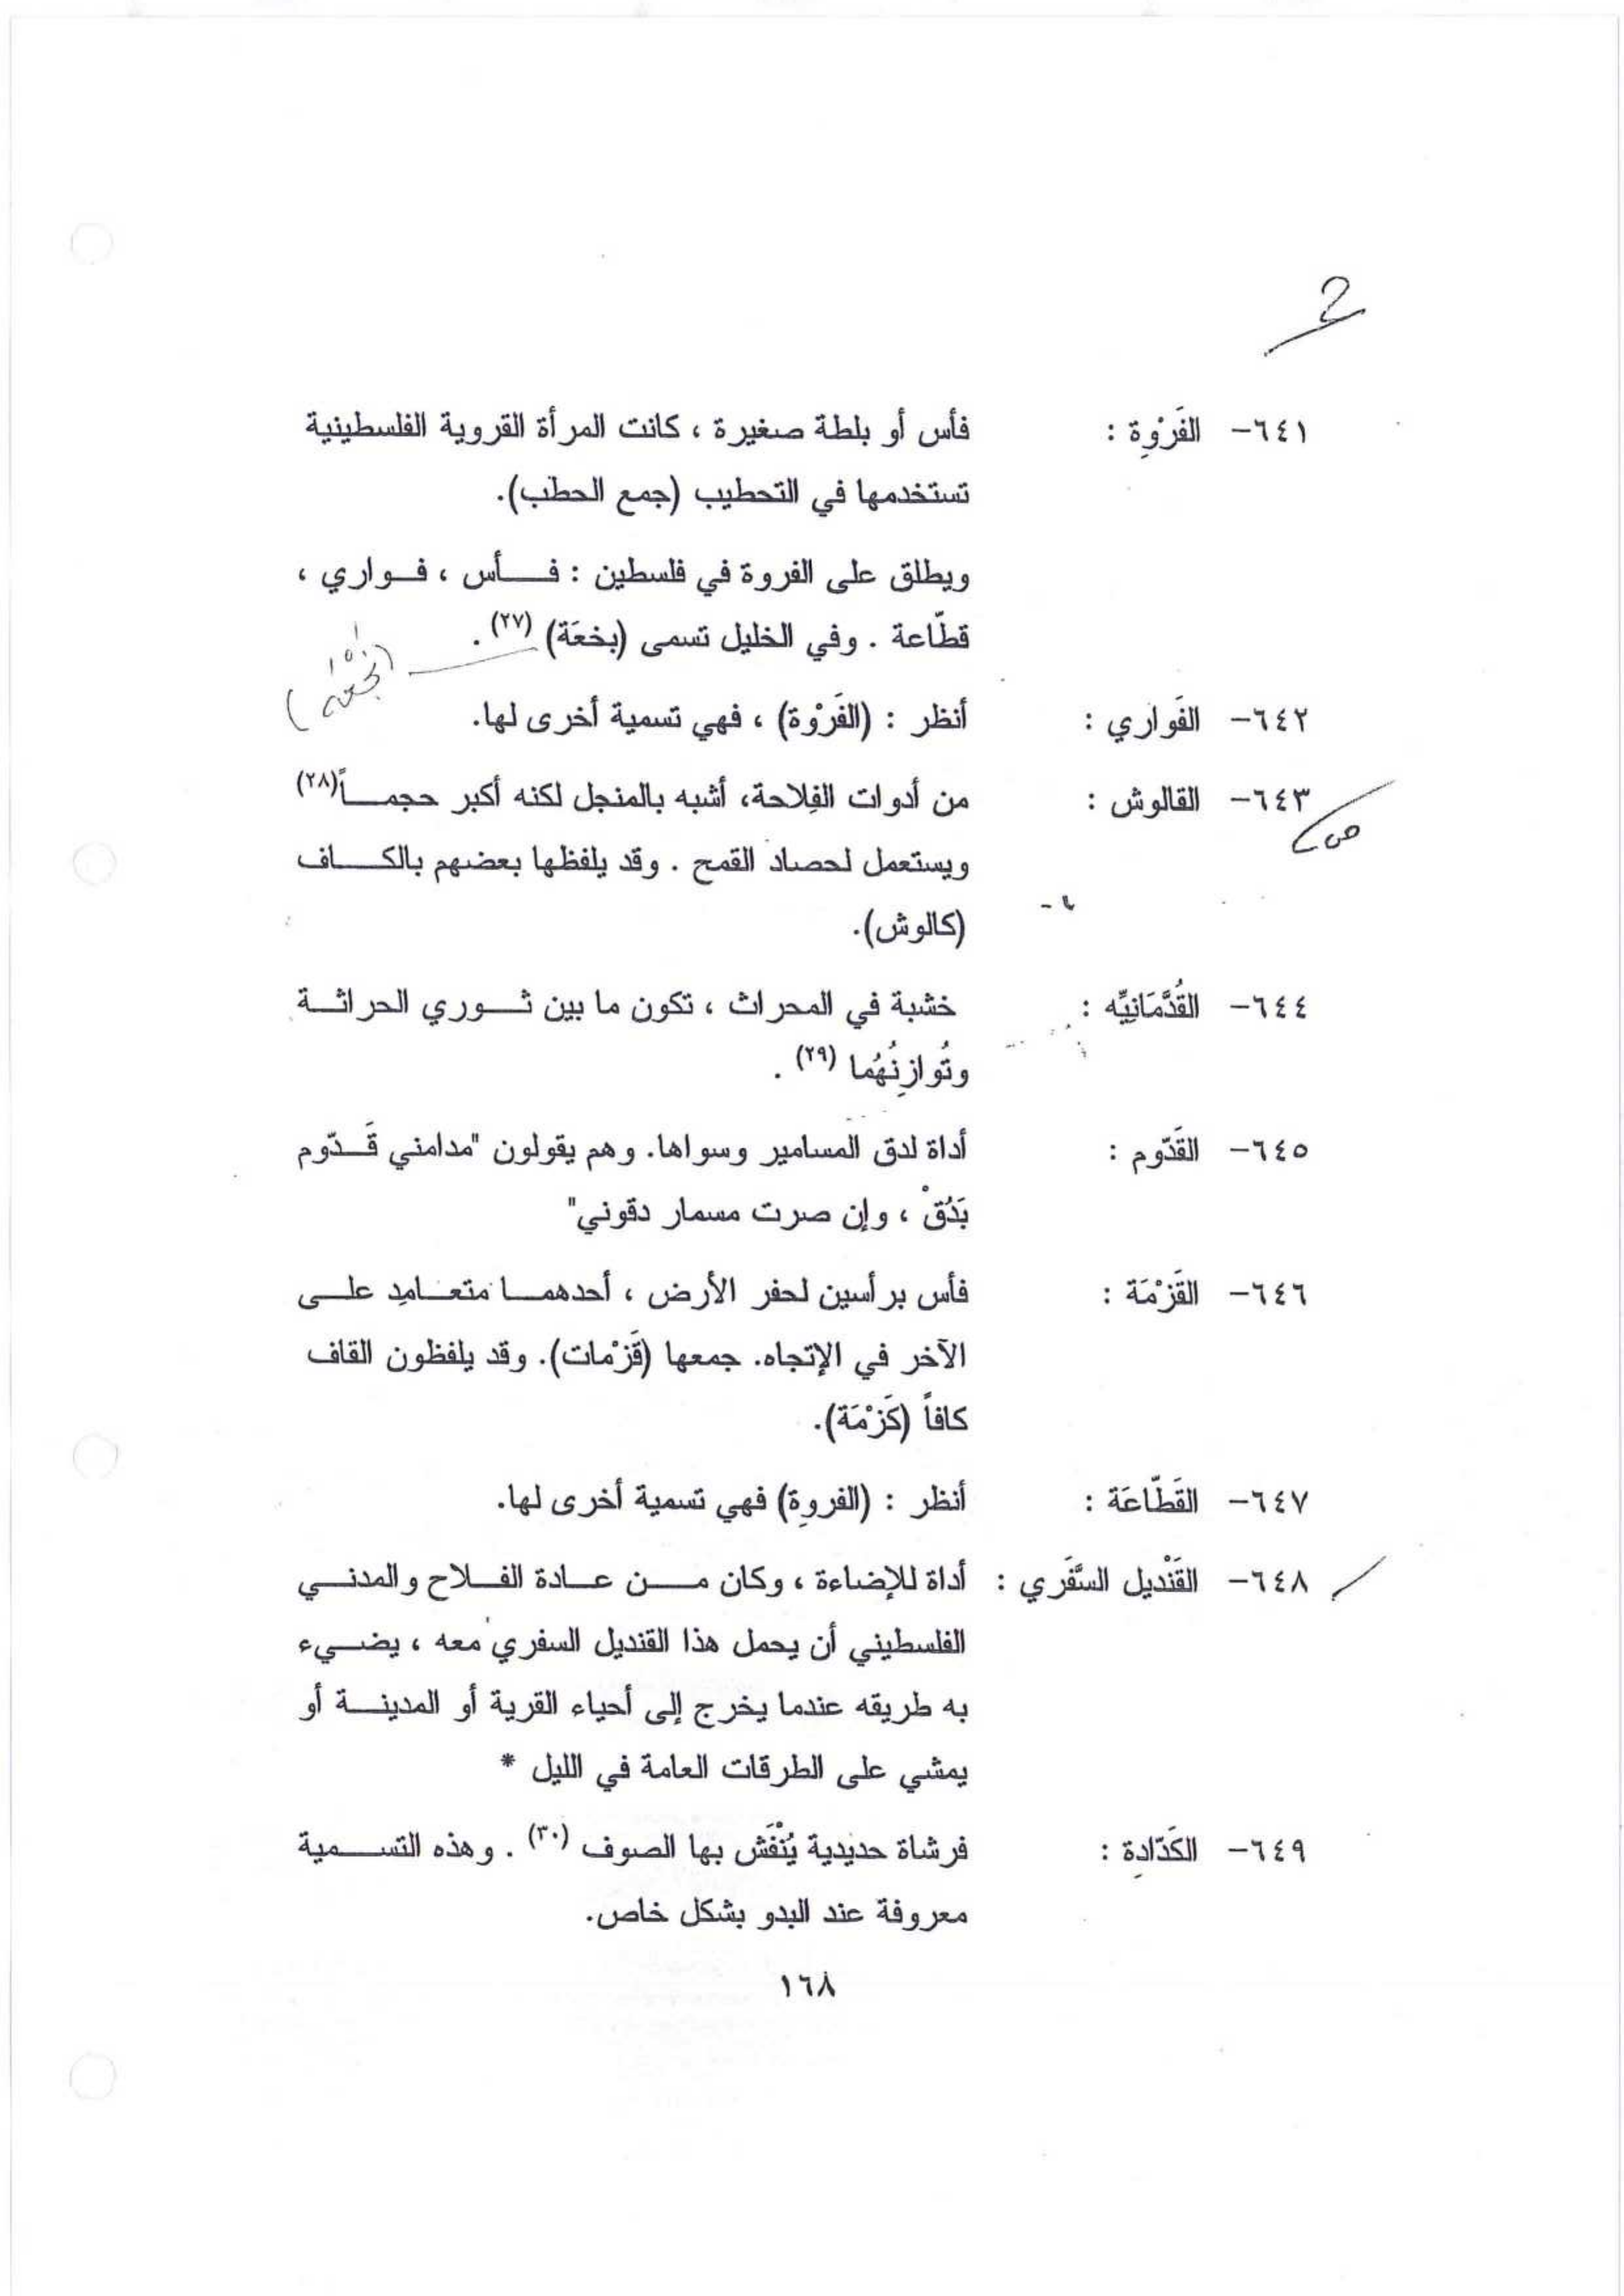 2
٦٤١- الفَرْوِة : فأس أو بلطة صغيرة ، كانت المرأة القروية الفلسطينية
تستخدمها في التحطيب (جمع الحطب).
ويطلق على الفروة في فلسطين : فــأس ، فـواري ،
قطّاعة . وفي الخليل تسمى (بخعَة) (٢٧) .
٦٤٢- الفَواري : أنظر : (الفَرْوِة) ، فهي تسمية أخرى لها.
٦٤٣- القالوش : من أدوات الفِلاحة، أشبه بالمنجل لكنه أكبر حجمــاً(٢٨)
ص
ويستعمل لحصاد القمح . وقد يلفظها بعضهم بالكــاف
(كالوش).
٦٤٤- القُدَّمَانِيِّه : خشبة في المحراث ، تكون ما بين ثــوري الحراثــة
وتُوازِنُهُما (٢٩) .
٦٤٥- القَدّوم : أداة لدق المسامير وسواها. وهم يقولون "مدامني قَـدّوم
بَدُقْ ، وإن صرت مسمار دقوني"
٦٤٦- القَزْمَة : فأس برأسين لحفر الأرض ، أحدهمــا متعـامِد علــى
الآخر في الإتجاه. جمعها (قَزْمات). وقد يلفظون القاف
كافاً (كَزْمَة).
٦٤٧- القَطّاعَة : أنظر : (الفروِة) فهي تسمية أخرى لها.
٦٤٨- القَنْديل السَّفَري : أداة للإضاءة ، وكان مــن عـادة الفـلاح والمدنــي
الفلسطيني أن يحمل هذا القنديل السفري معه ، يضــيء
به طريقه عندما يخرج إلى أحياء القرية أو المدينــة أو
يمشي على الطرقات العامة في الليل *
٦٤٩- الكَدّادِة : فرشاة حديدية يُنْفَش بها الصوف (٣٠) . وهذه التســمية
معروفة عند البدو بشكل خاص.
١٦٨